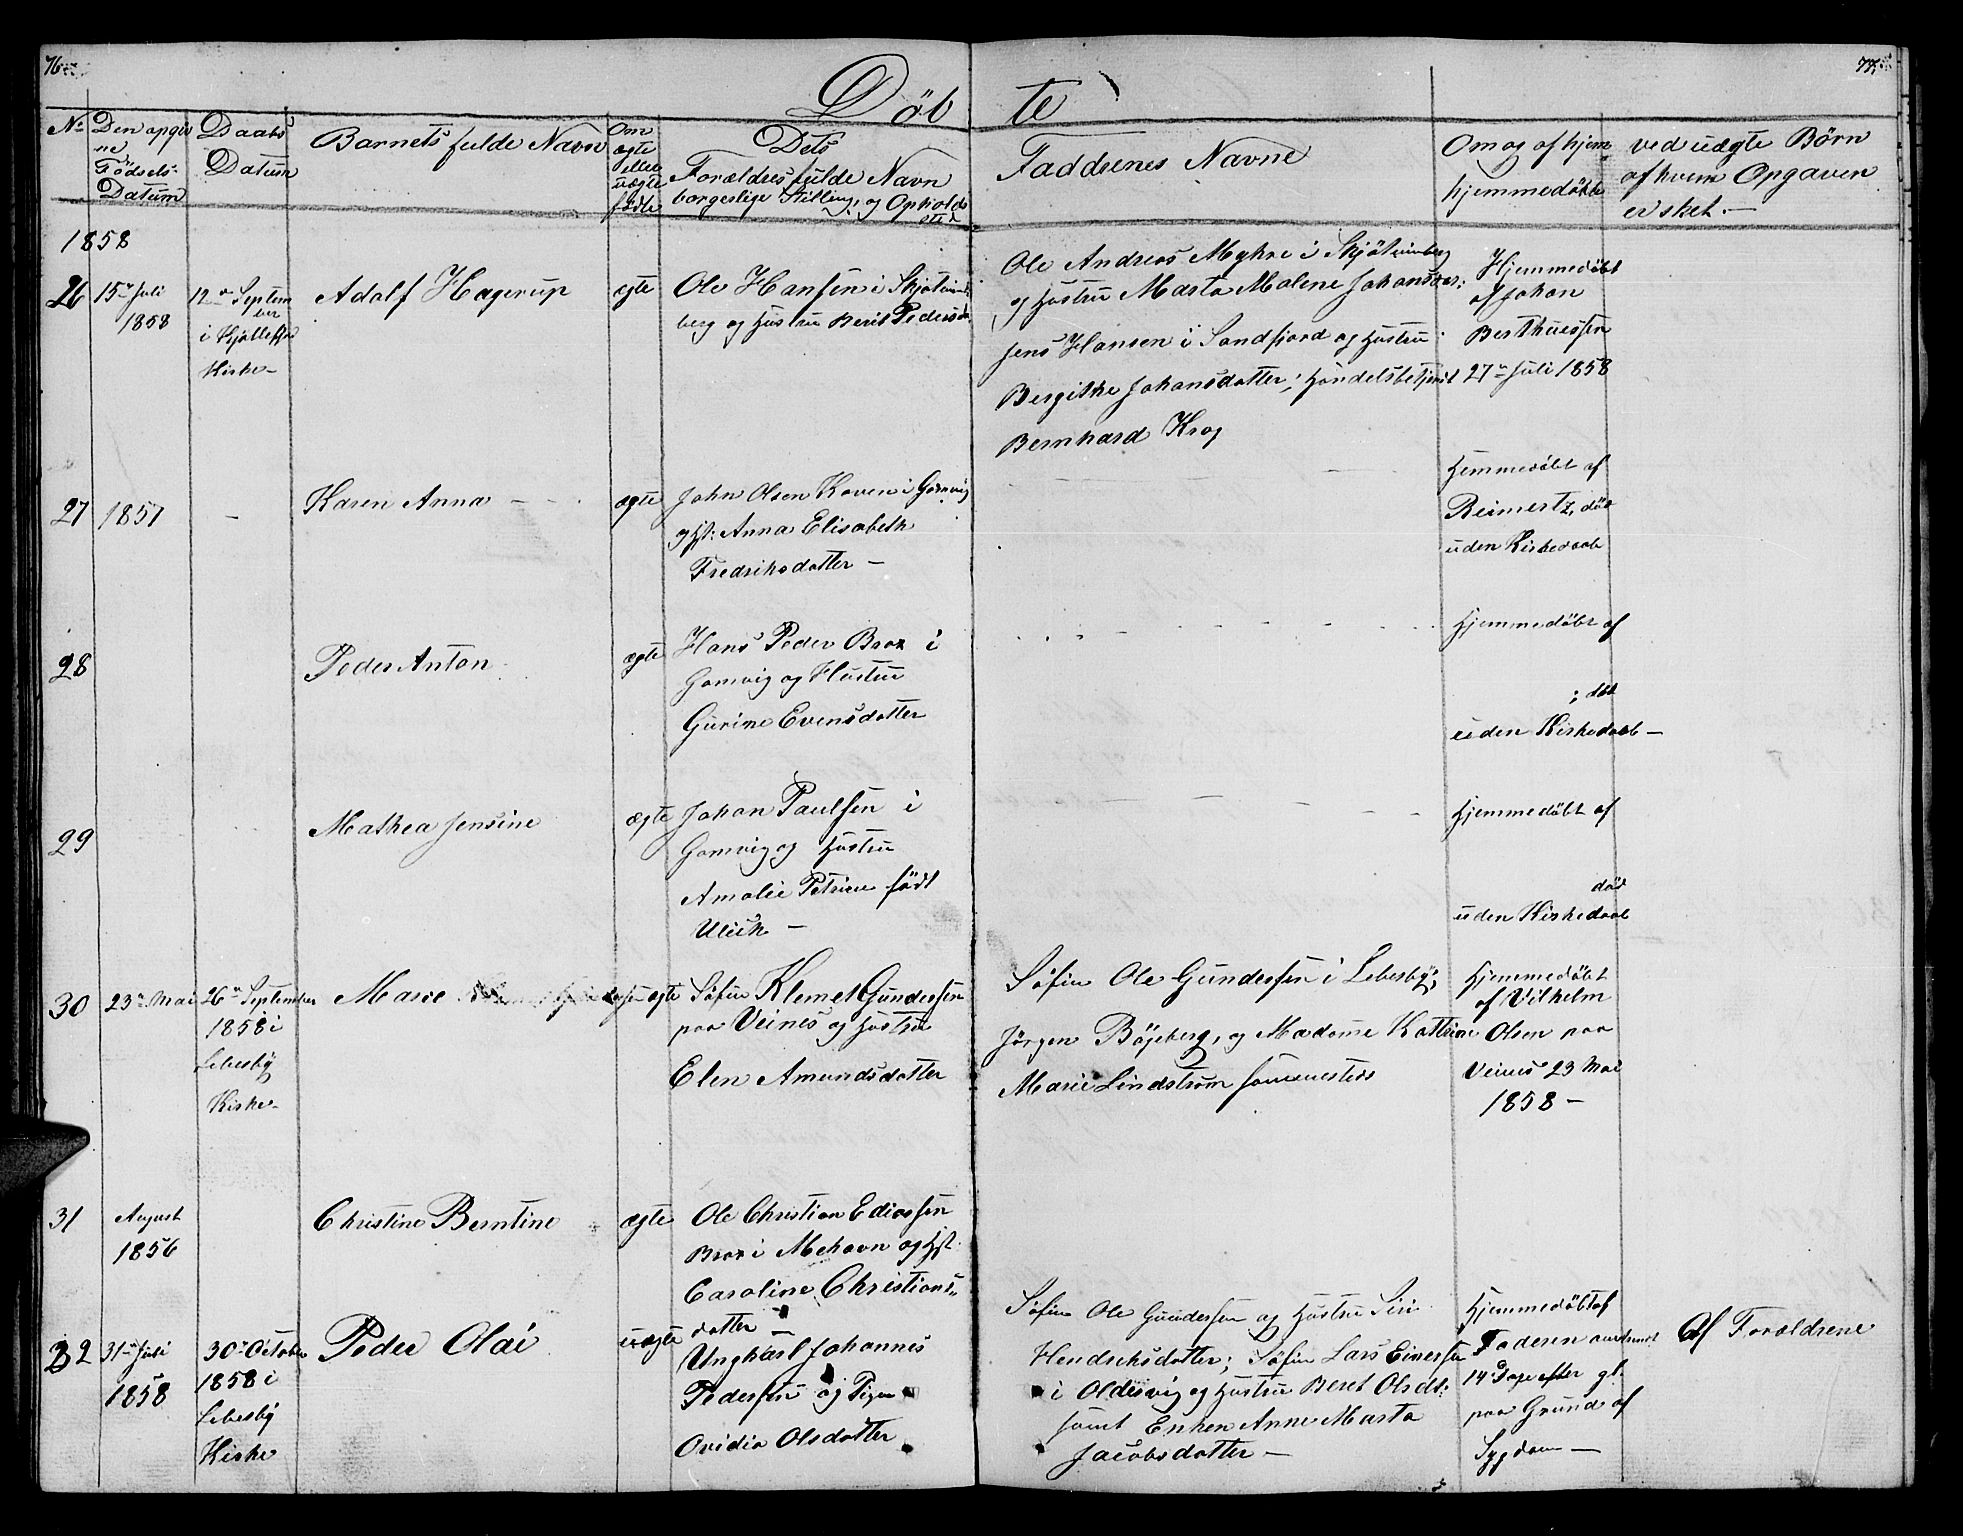 76
77
Döbte
No
Den opgiv
ne
Födsels-
Datum
Daabs
Datum
Barnets fulde Navn
Om
ægte
eller
uægte
födte
Dets
Forældres fulde Navn
borgerlige Stilling, og Opholds
sted
Faddrenes Navne
Om og af hvem
hjemmedöbte
ved uægte Börn
af hvem Opgaven
er sket.—
1858
26
15de Juli
1858
12te Septem
ber
i Kjöllefjord
Kirke-
Adolf Hagerup
egte
Ole Hansen i Skjötnind
berg og Hustru Berit Pedersd.
Ole Andreas Myhre i Skjötninberg
og Hustru Marta Malene Johansdr;
Jens Hansen i Sandfjord og Hustru
Bergitke Johansdatter; Handelsbetjent
Bernhard Krog
Hjemmedöbt
af Johan
Berthuessen
27de Juli 1858
27
1857
-
Karen Anna -
ægte
John Olsen Koven i Gamvig
og Hst: Anna Elisabeth
Fredriksdatter -
Hjemmedöbt af
Reimertz, död
uden Kirkedaab
28
Peder Anton
ægte
Hans Peder Brox i
Gamvig og Hustru
Gurine Evensdatter
Hjemmedöbt af
; död
uden Kirkedaab -
29
Mathea Jensine
ægte
Johan Paulsen i
Gamvig og Hustru
Amalie Petrine födt
Ulich -
Hjemmedöbt af
död
uden Kirkedaab
30
23de Mai
26de September
1858 i
Lebesby
Kirke-
Marie
ægte
Söfin Klemet Gundersen
paa Veines og Hustru
Elen Amundsdatter
Söfin Ole Gundersen i Lebesby;
Jörgen Böjeberg, og Madame Katrine
Marie Lindström sammesteds
Hjemmedöbt
af Vilhelm
Olsen paa
Veines 23 Mai
1858 -
31
August
1856
Christine Berntine
ægte
Ole Christian Ediassen
Brox i Mehavn og Hst
Caroline Christians-
datter
32
31te Juli
1858
30te October
1858 i
Lebesby
Kirke
Peder Olai
uægte
Ungkarl Johannes
Pedersen og Pigen
Ovidia Olsdatter
Söfin Ole Gundersen og Hustru Siri
Hendriksdatter; Söfin Lars Einersen
i Oldervig og Hustru Beret Olsdt:
samt Enken Anne Marta
Jacobsdatter -
Hjemmedöbt af
Faderen
14 Dage efter gl.
paa Grund af
Sygdom -
Af Forældrene